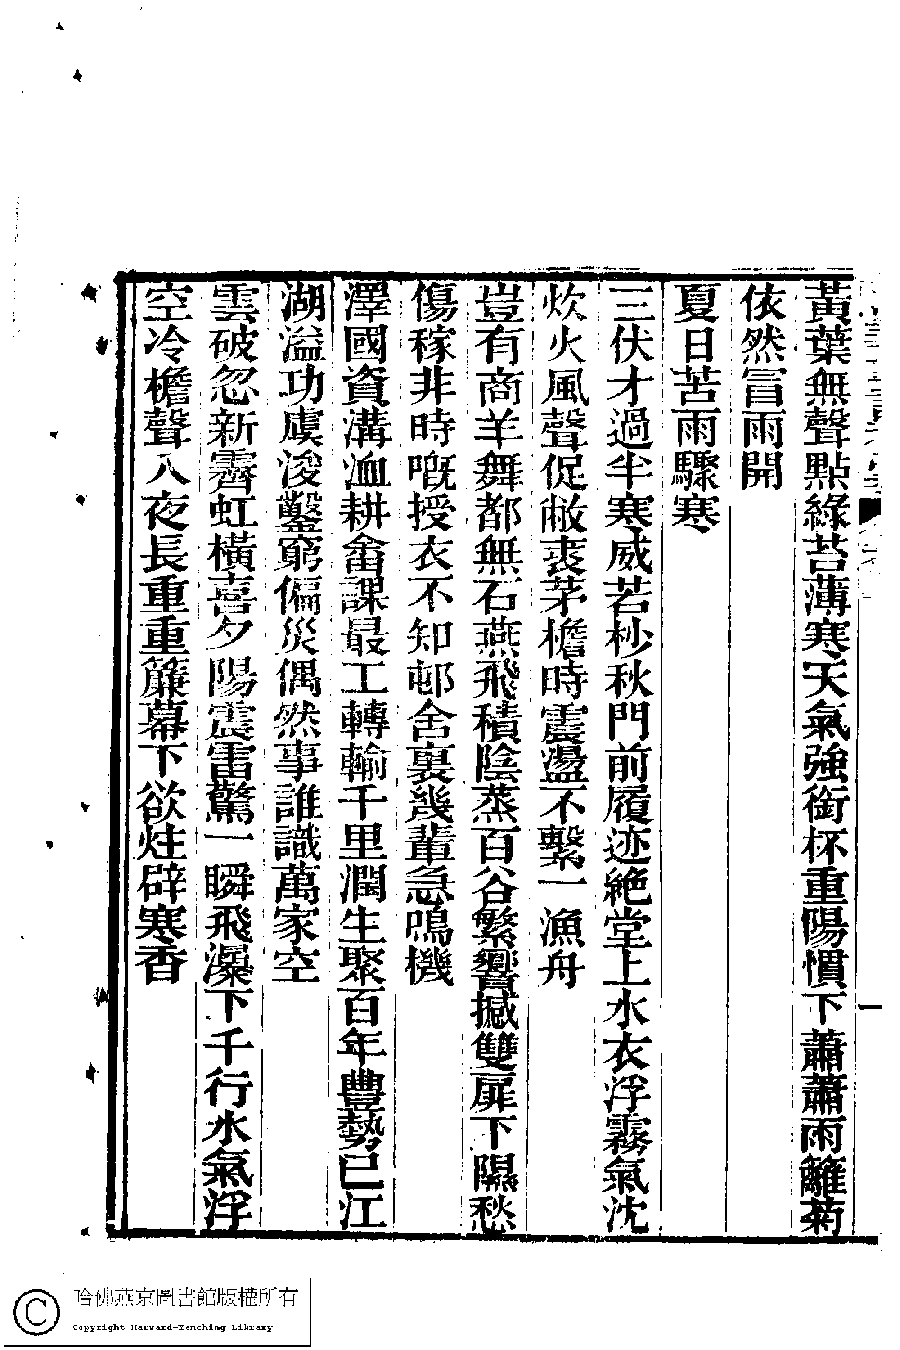 黃葉無聲點綠苔薄寒天氣強銜杯重陽慣下蕭蕭雨籬菊
依然冒雨開
夏日苦雨驟寒
三伏才過半寒威若杪秋門前履迹絕堂上水衣浮霧氣沈
炊火風聲促敝裘茅檐時震盪不繫一漁舟
豈有商羊舞都無石燕飛積陰蒸百谷繁響撼雙扉下隰愁
傷稼非時嘅授衣不知邨舍裏幾輩急鳴機
澤國資溝洫耕畬課最工轉輸千里潤生聚百年豐勢已江
湖溢功虞浚鑿窮偏災偶然事誰識萬家空
雲破忽新霽虹橫喜夕陽震雷驚一瞬飛瀑下千行水氣浮
空冷檐聲入夜長重重簾幕下欲炷辟寒香
哈佛燕京圖書館版權所有
Copyright Harvard-Yenching Library